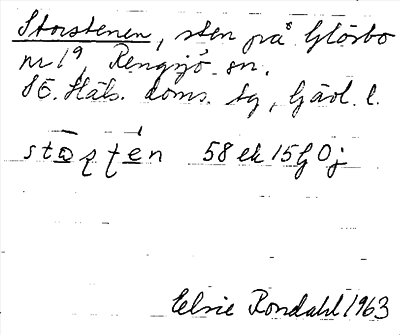 Storstenen, sten på Glösbo
nr 1⁹, Rengsjö sn.
SÖ. Häls. doms. tg, Gävl. l.
stōʂʈén 58 ek 15f Oj
Elsie Rondahl 1963